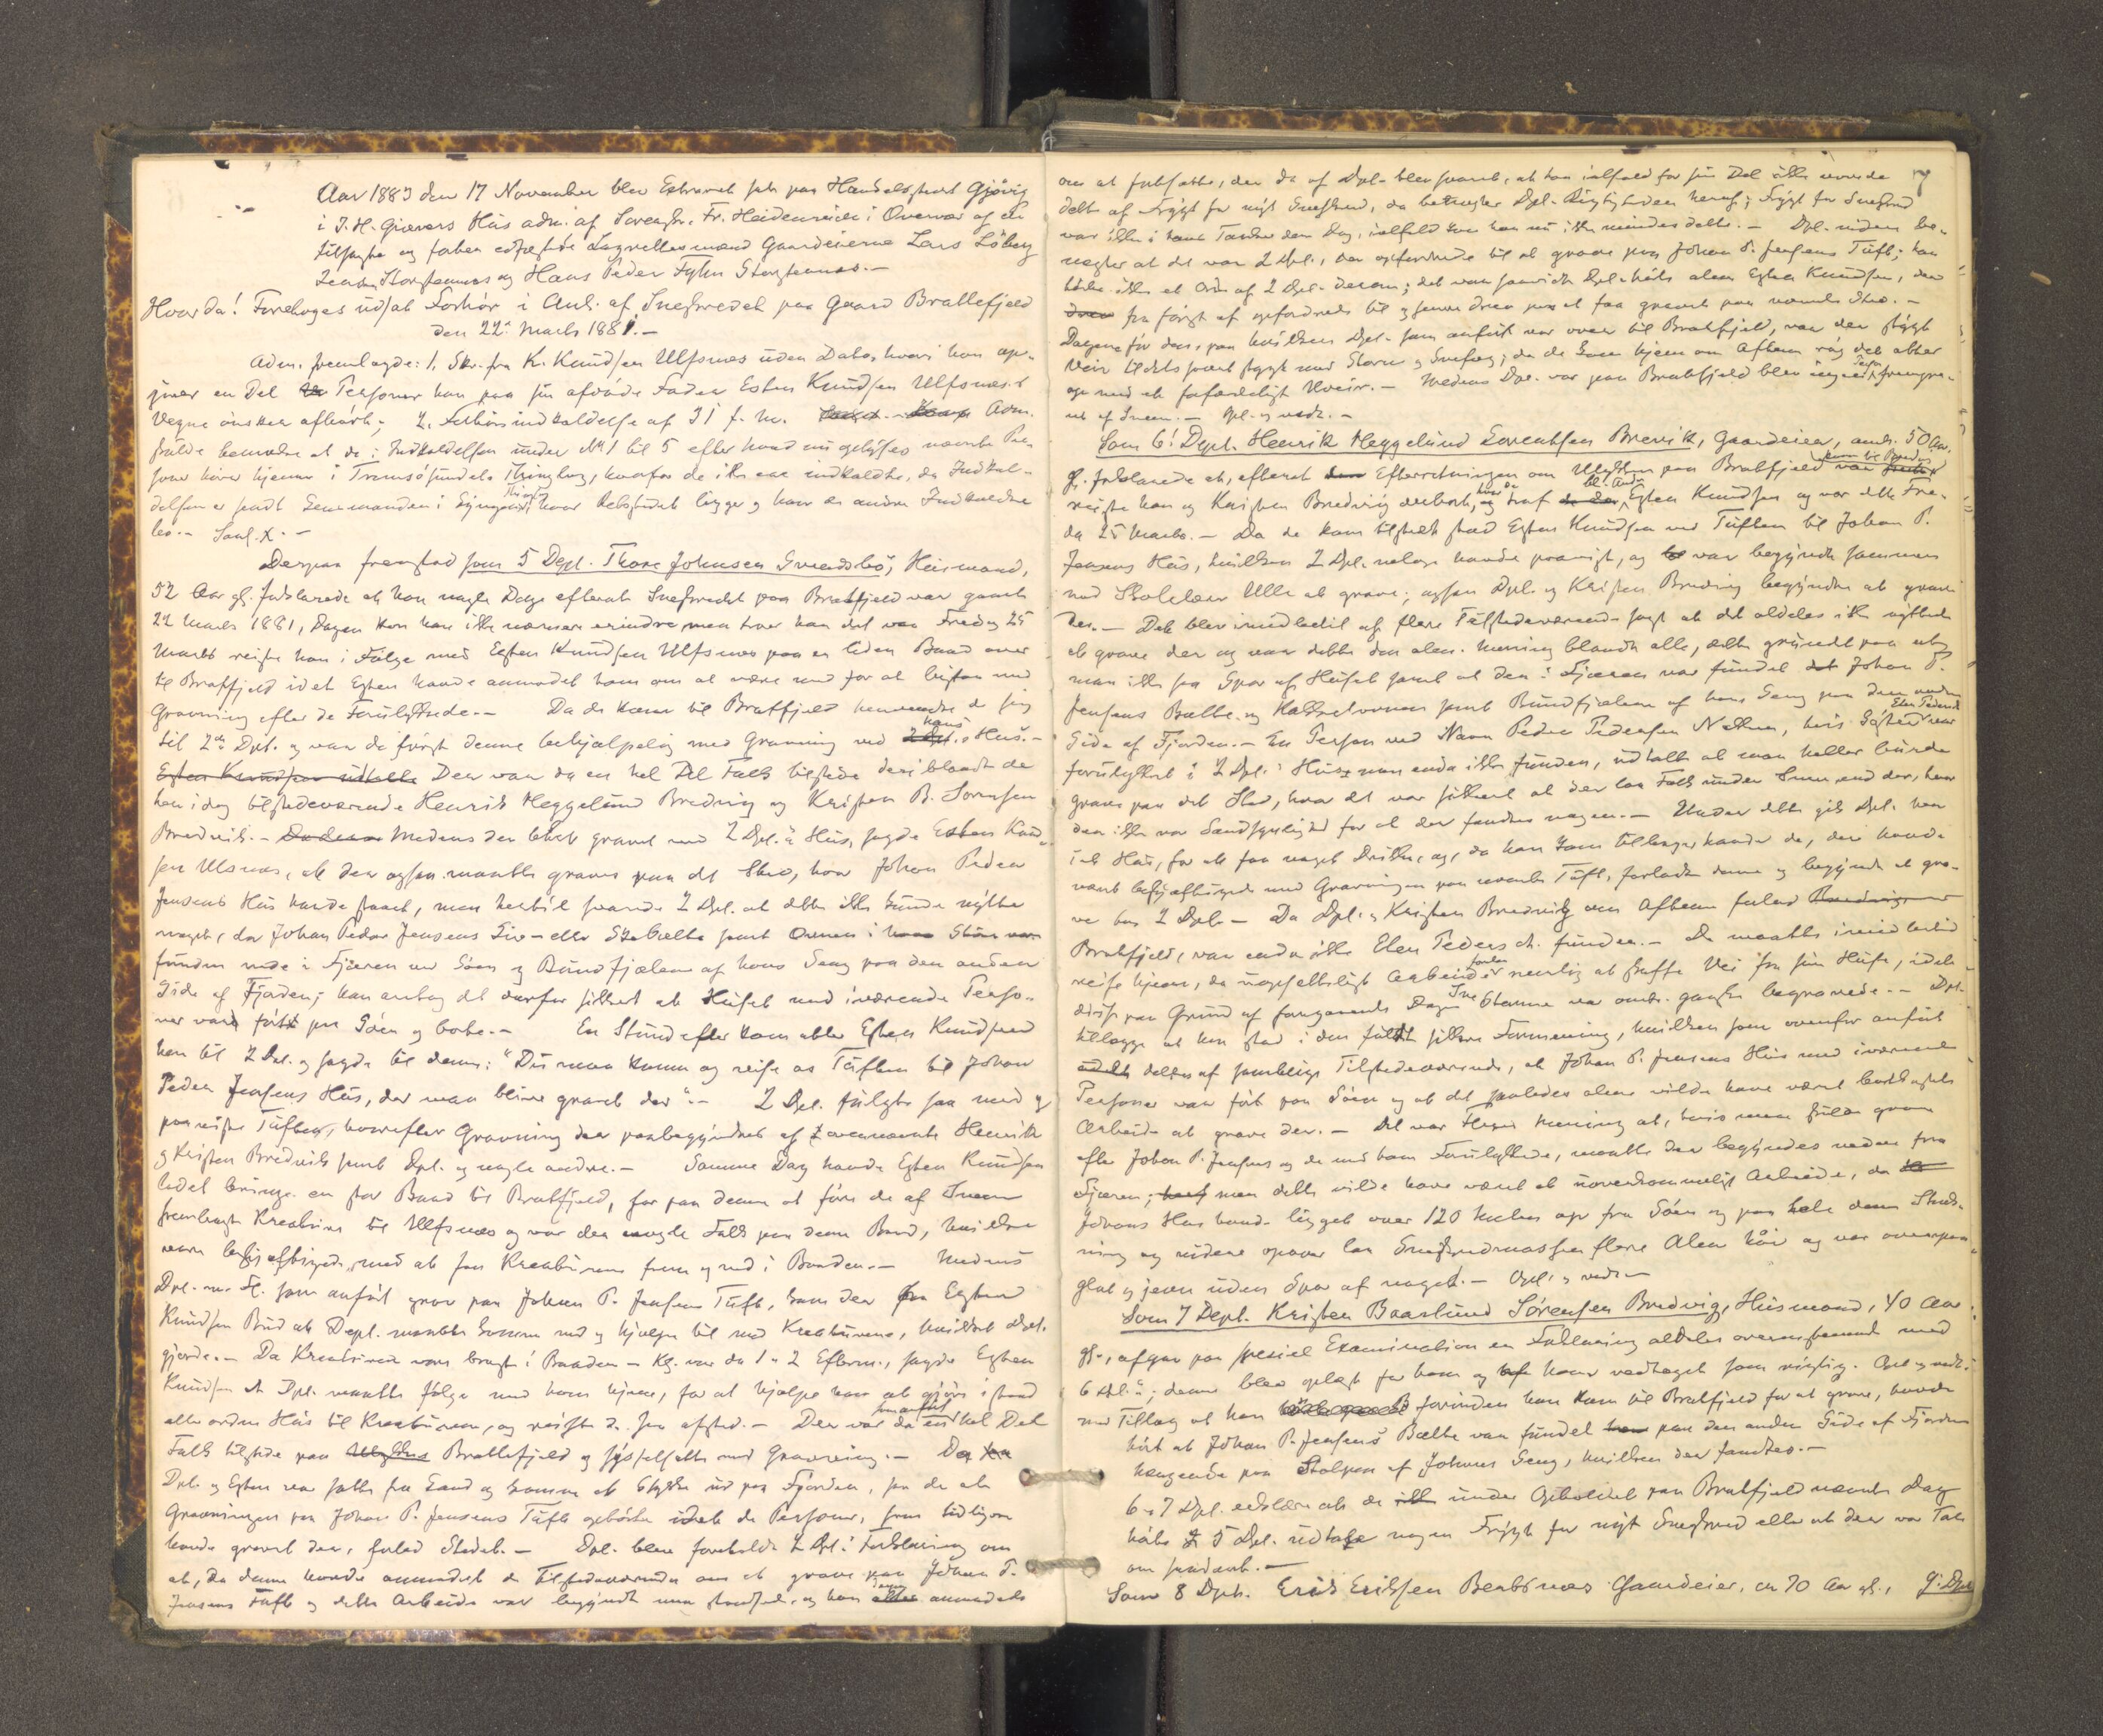 Aar 1883 den 17 November blev Extraret sat paa Handelsstedet Gjövig
i J. H. Giævers Hus adm. af Sorenskr. Fr. Heidenreich i Overvær af de
tilsagte og forhen edfæstede Lagrettesmænd Gaardeierne Lars Löberg
Storstennes og Hans Peder Fyhn Storstennes.-
Hvor da! Foretoges udsat Forhör i Anl. af Sneskredet paa Gaard Brattefjeld
den 22de Marts 1881.-
Adm. fremlagde: 1. Skr. fra K. Knudsen Ulfsnæs uden Dato, hvori han op-
giver en Del Personer han paa sin afdöde Fader Esten Knudsen Ulfsnæs's
Vegne önsker afhört; 2. Forhörsindkaldelse af 31 f. M. Adm.
skulde bemærke at de i Indkaldelsen under No 1 til 5 efter hvad nu oplyses nævnte Per-
soner hörer hjemme i Tromsösundets Thinglag, hvorfor de ikke ere indkaldte, da Indkal-
delsen er sendt Lensmanden i Lyngens Thingl. hvor Retsstedet ligger og hvor de andre Indkaldte
bor.- Saal. X.-
Derpaa fremstod som 5 Dept. Thore Johnsen Svendsbö, Husmand,
52 Aar gl. forklarede at han nogle Dage efterat Sneskredet paa Bratfjeld var gaaet
22 Marts 1881, Dagen kan han ikke nærmere erindre, men tror han det var Fredag 25
Marts reiste han i Fölge med Esten Knudsen Ulfsnæs paa en liden Baad over
til Bratfjeld idet Esten havde anmodet ham om at være med for at bistaa med
Gravning efter de Forulykkede.- Da de kom til Bratfjeld henvendte de sig
til 2den Dpt. og var da först denne behjælpelig med Gravning ved hans Hus.-
Esten Knudsen udtalte Der var da en hel Del Folk tilstede deriblandt de
her idag tilstedeværende Henrik Heggelund Bredvig og Kristen B. Sörensen
Bredvik.- Medens der blev gravet ved 2 Dpt.'s Hus, sagde Esten Knud-
sen Ulfsnæs, at der ogsaa maatte graves paa det Sted, hvor Johan Peder
Jensens Hus havde staaet, men hertil svarede 2 Dpt. at dette ikke kunde nytte
noget, da Johan Peder Jensens Liv- eller Skobælte samt Ovnen i Stuen var
funden nede i Fjæren ved Söen og Bundfjælene af hans Seng paa den anden
Side af Fjorden; han antog det derfor sikkert at Huset med iværende Perso-
ner var fört paa Söen og borte.- En Stund efter kom atter Esten Knudsen
hen til 2 Dpt. og sagde til denne: "Du maa komme og vise os Tuften til Johan
Peder Jensens Hus, der maa blive gravet der".- 2 Dpt. fulgte saa med og
paaviste Tuften, hvorefter Gravning der paabegyndtes af ovennævnte Henrik
og Kristen Bredvik samt Dpt. og nogle andre.- Samme Dag havde Esten Knudsen
ladet bringe en stor Baad til Bratfjeld, for paa denne at före de af Sneen
frembragte Kreaturer til Ulfsnæs og var der nogle Folk paa denne Baad, hvilke
vare beskjæftigede med at faa Kreaturene frem og ned i Baaden.- Medens
Dpt. m. Fl. som anfört grov paa Johan P. Jensens Tuft, kom der fra Esten
Knudsen Bud at Dept. maatte komme ned og hjælpe til med Kreaturene, hvilket Dpt.
gjorde.- Da Kreaturene vare bragt i Baaden - Kl. var da 1 a 2 Efterm., sagde Esten
Knudsen at Dpt. maatte fölge med ham hjem, for at hjælpe ham at gjöre istand
eller ordne Hus til Kreaturene, og reiste de saa afsted.- Der var da som anfört en hel Del
Folk tilstede paa Brattefjeld og sysselsatte med Gravning.- Da
Dpt. og Esten var satte fra Land og komne et Stykke ud paa Fjorden, saa de at
Gravningen paa Johan P. Jensens Tuft ophörte idet de Personer, som tidligere
havde gravet der, forlod Stedet.- Dpt. blev foreholdt 2 Dpt.'s Forklaring om
at, da denne havde anmodet de Tilstedeværende om at grave paa Johan P.
Jensens Tuft og dette Arbeide var begyndt men standset, og han anmodede
7
om at fortsætte, der da af Dpt. blev svaret, at han ialfald for sin Del ikke vovede
dette af Frygt for nyt Sneskred, da benegter Dpt. Rigtigheden heraf; Frygt for Sneskred
var ikke i hans Tanker den Dag, ialfald kan han nu ikke mindes dette.- Dpt. videre be-
negter at det var 2 Dpt., der opfordrede til at grave paa Johan P. Jensens Tuft; han
hörte ikke et Ord af 2 Dpt. derom; det var saavidt Dpt. hörte alene Esten Knudsen, der
fra först af opfordrede til og senere drev paa at faa gravet paa nævnte Sted.-
Dagene för den, paa hvilken Dpt. som anfört var over til Bratfjeld, var der stygt
Veir tildels svært stygt med Storm og Snefog; da de kom hjem om Aftenen røg det atter
op med et forfærdeligt Uveir.- Medens Dpt. var paa Bratfjeld blev ingen Person fremgra-
vet af Sneen.- Opl. og vedt.-
Som 6te Dept. Henrik Heggelund Lorentsen Brevik, Gaardeier, omtr. 50 Aar
gl. forklarede at, efterat Efterretningen om Ulykken paa Bratfjeld var kom til Bredv.
reiste han og Kristen Bredvig derbort, hvor de traf bl. Andre Esten Knudsen og var dette Fre-
dag 25 Marts.- Da de kom tilstede stod Esten Knudsen ved Tuften til Johan P.
Jensens Hus, hvilken 2 Dpt. nylig havde paavist, og var begyndt sammen
med Skolelærer Ulle at grave; ogsaa Dpt. og Kristen Bredvig begyndte at grave
der.- Det blev imidlertid af flere Tilstedeværende sagt at det aldeles ikke nyttede
at grave der og var dette den alm. Mening blandt alle, dette grundet paa at
man ikke saa Spor af Huset samt at der i Fjæren var fundet Johan P.
Jensens Bælte og Kakkelovnen samt Bundfjælene af hans Seng paa den anden
Side af Fjorden.- En Person ved Navn Peder Pedersen Nakken, hvis Söster Elen Pedersd. var
forulykket i 2 Dpt.'s Hus men enda ikke funden, udtalte at man heller burde
grave paa det Sted, hvor det var sikkert at der laa Folk under Sneen, end der, hvor
der ikke var Sandsynlighed for at der fandtes nogen.- Under dette gik Dpt. hen
i et Hus, for at faa noget Drikke, og, da han kom tilbage, havde de, der havde
været beskjæftigede med Gravningen paa nævnte Tuft, forladt denne og begyndt at gra-
ve hos 2 Dpt.- Da Dpt. og Kristen Bredvig om Aftenen forlod
Bratfjeld, var enda ikke Elen Pedersd. funden.- De maatte imidlertid
reise hjem, da uopsættelige Arbeider forelaa nemlig at skaffe Vei fra sin Huse, idet
disse paa Grund af foregaaende Dages Snestorme var omtr. ganske begravede.- Dpt.
tillagde at han stod i den fuldt sikre Formening, hvilken som ovenfor anfört
deltes af samtlige Tilstedeværende, at Johan P. Jensens Hus med iværende
Personer var fört paa Söen og at det saaledes alene vilde have været bortkastet
Arbeide at grave der.- Det var Hns Mening at, hvis man skulde grave
efter Johan P. Jensens og de med ham Forulykkede, maatte der begyndes nedenfra
Fjæren; men dette vilde have været et uoverkommeligt Arbeide, da
Johans Hus havde ligget over 120 Meter op fra Söen og paa hele denne Stræk-
ning og videre opover laa Sneskredmassen flere Alen höi og var ovenpaa
glat og jevn uden Spor af noget.- Opl. og vedt.-
Som 7 Dept. Kristen Baarlund Sörensen Bredvig, Husmand, 40 Aar
gl., afgav paa speciel Examination en Forklaring aldeles overensstemmende med
6 Dpt.'s; denne blev oplæst for ham og af ham vedtaget som rigtig. Opl. og vedt.
med Tillæg at han forinden han kom til Bratfjeld for at grave, havde
hört at Johan P. Jensens Bælte var fundet paa den anden Side af Fjorden
hængende paa Stolpen af Johans Seng, hvilken der fandtes.-
6 og 7 Dpt. erklære at de under Opholdet paa Bratfjeld nævnte Dag
hörte 5 Dpt. udtale nogen Frygt for nyt Sneskred eller at der var Tale
om saadant.-
Som 8 Dpt. Erik Eriksen Bentsnæs Gaardeier, ca 70 Aar gl., 9: Dpt